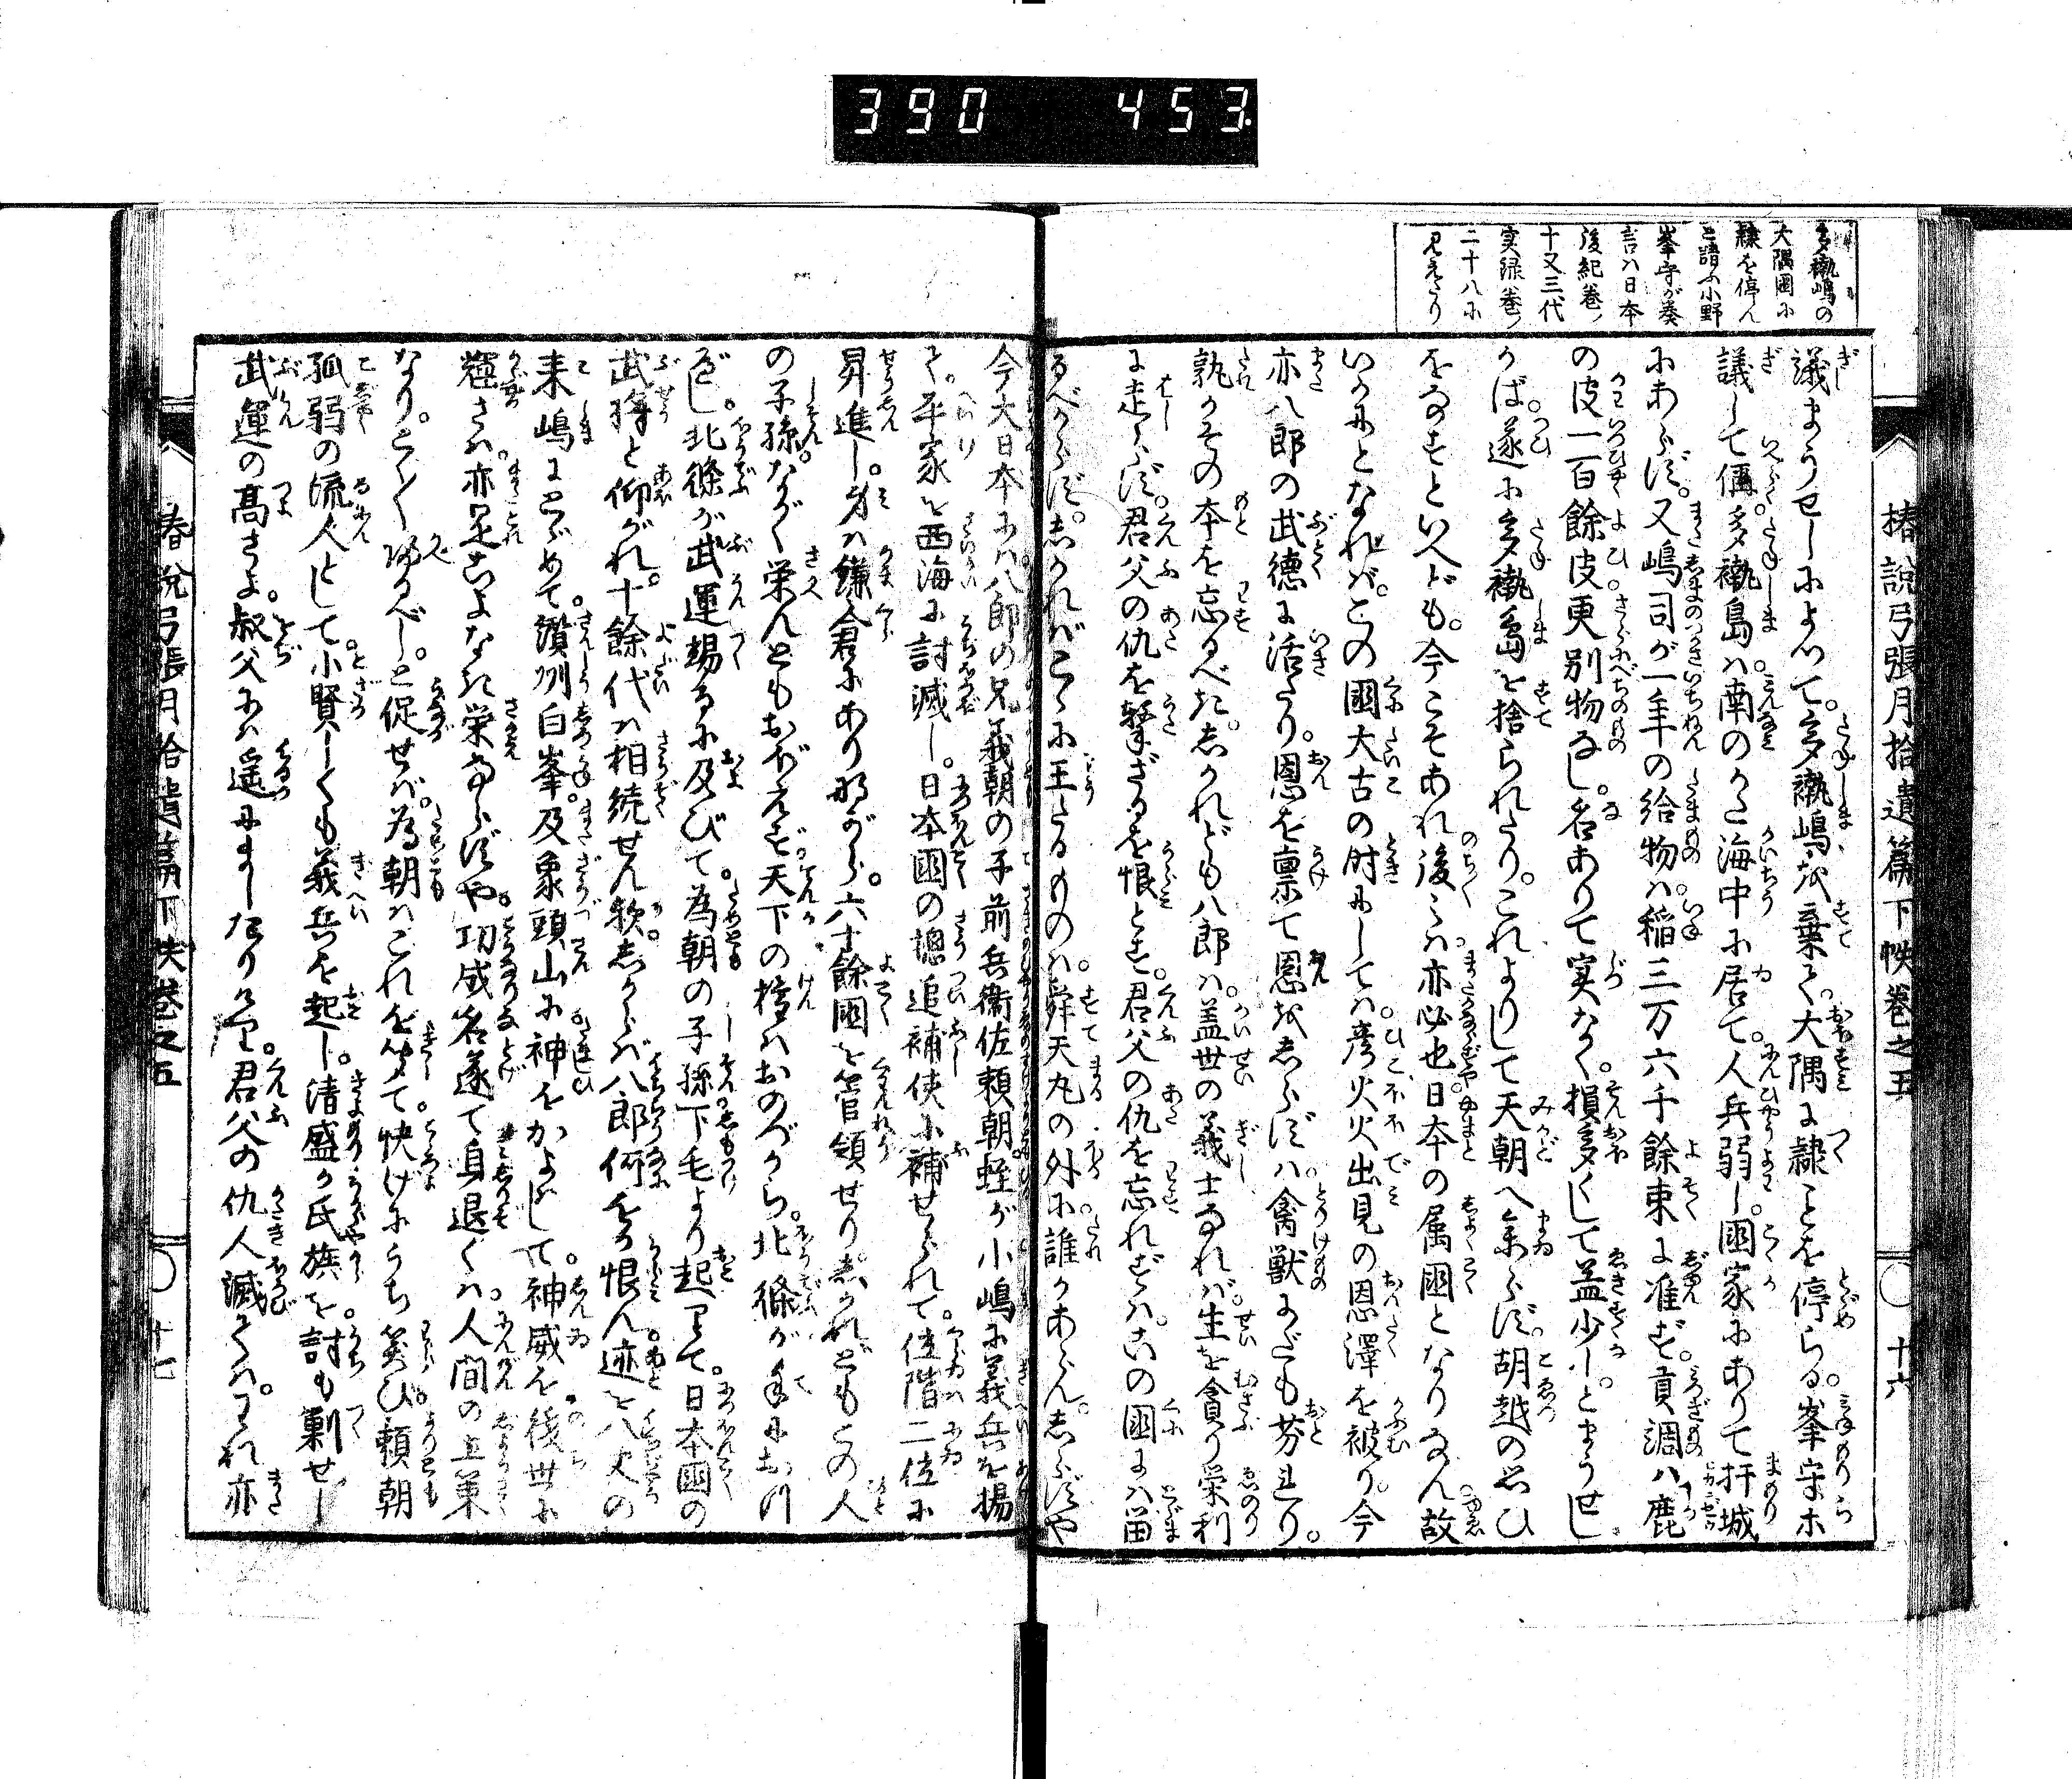 390 453
多褹嶋の
大隅國に
隷を停ん
と請ふ小野
峯守が奏
言ハ日本
後紀巻ノ
十又三代
実録巻ノ
二十八に
見えたり
椿説弓張月拾遺篇下帙巻之五 ○十六
議まうせしによつて。多褹嶋を棄て。大隅に隷ことを停らる。峯守ホ
議して偁。多褹島ハ。南のかた海中に居て。人兵弱し。國家にありて扞城
にあらず。又嶋司が一年の給物ハ。稲三万六千餘束に准ず。貢調ハ鹿
の皮一百餘皮。更別物なし。名ありて実なく。損多くして益少し。とまうせし
かば。遂に多褹島を捨られたり。これよりして天朝へ参らず。胡越の思ひ
をなすといへども。今こそあれ後々ハ。亦必也。日本の属國となりなん。故
いかにとなれバ。この國大古の时にしてハ。彦火火出見の恩澤を被り。今
亦八郎の武徳に活たり。恩を禀て恩を志らずハ。禽獣にだも劣れり。
孰かその本を忘るべき。志かれども八郎ハ。盖世の義士なれバ。生を貪り栄利
に走らず。君父の仇を撃ざるを恨とす。君父の仇を忘れずハ。この國にハ畄
るべからず。志かれバこゝに王たるものハ。舜天丸の外に誰かあらん。志らずや
今大日本にハ八郎の兄。義朝の子前兵衞佐頼朝。蛭が小嶋に義兵を揚
て。平家を西海に討滅し。日本國の惣追補使に補せられて。位階二位に
昇進し。身ハ鎌倉にありながら。六十餘國を管領せり。志かれどもこの人
の子孫。ながく栄んともおぼえず。天下の権ハおのづから。北條が手におつ
べし。北條が武運竭るに及びて。為朝の子孫下毛より起りて。日本國の
武将と仰がれ。十餘代ハ相続せん歟。志からバ八郎何をか恨ん。迹を八丈の
来嶋にとゞめて。讃州白峯。及象頭山に神をかよはして。神威を後世に
輝さハ。亦是こよなき栄ならずや。功成名遂て身退くハ。人間の上策
なり。とく〳〵帰るべし。と促せバ。為朝ハこれを聞て快げにうち笑ひ。頼朝
孤弱の流人として。小賢しくも義兵を起し。清盛が氏族を討も剿せし
武運の髙さよ。叔父にハ遥にましたりけり。君父の仇人滅てハ。われ亦
椿説弓張月拾遺篇下帙巻之五 ○十七